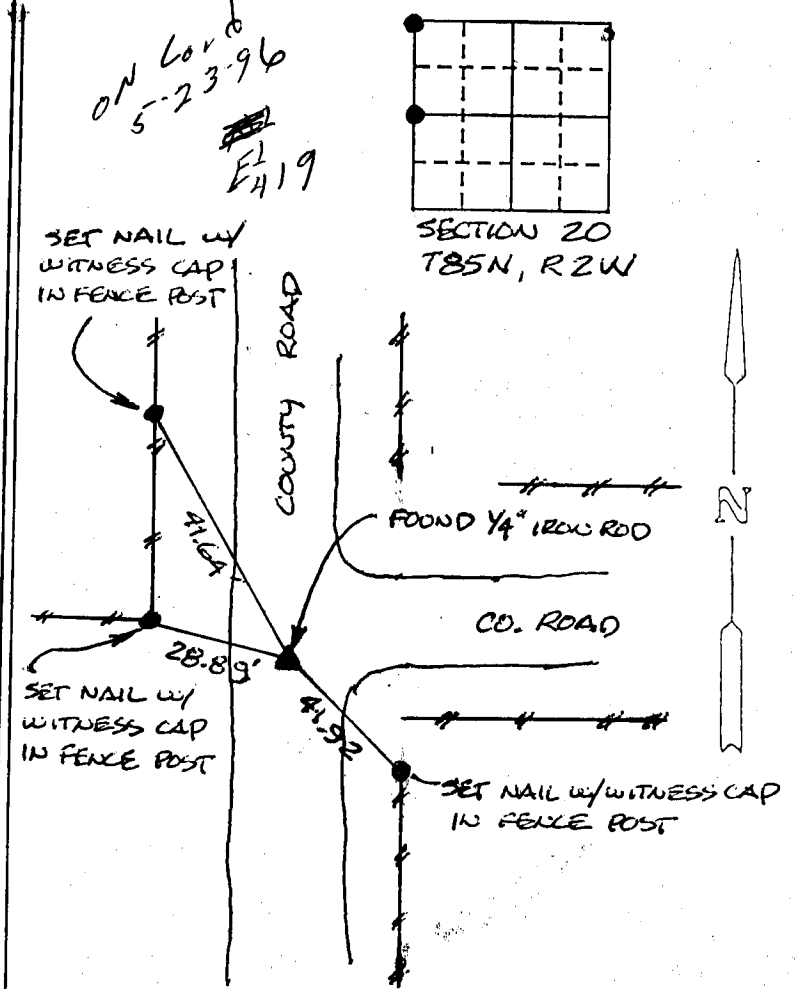 ON
5-23-96
E 1/4 19
SECTION 20
T85N, R2W
SET NAIL W/
WITNESS CAP
IN FENCE POST
COUNTY ROAD
41.64
N
FOUND 1/4" IRON ROD
CO. ROAD
28.89'
SET NAIL W/
WITNESS CAP
IN FENCE POST
41.92
SET NAIL W/WITNESS CAP
IN FENCE POST